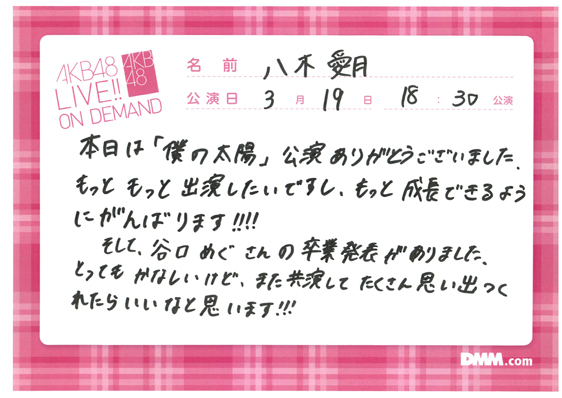 AKB48
LIVE!!
ON DEMAND
AKB
48
名前 八木 愛月
公演日 3月19日 18:30公演
本日は「僕の太陽」公演ありがとうございました、
もっと もっと 出演したいですし、もっと 成長できるよう
にがんばります!!!!
そして、谷口 めぐ さんの 卒業発表がありました、
とっても かなしいけど、また共演して たくさん思い出つく
れたらいいなと思います!!!
DMM.com